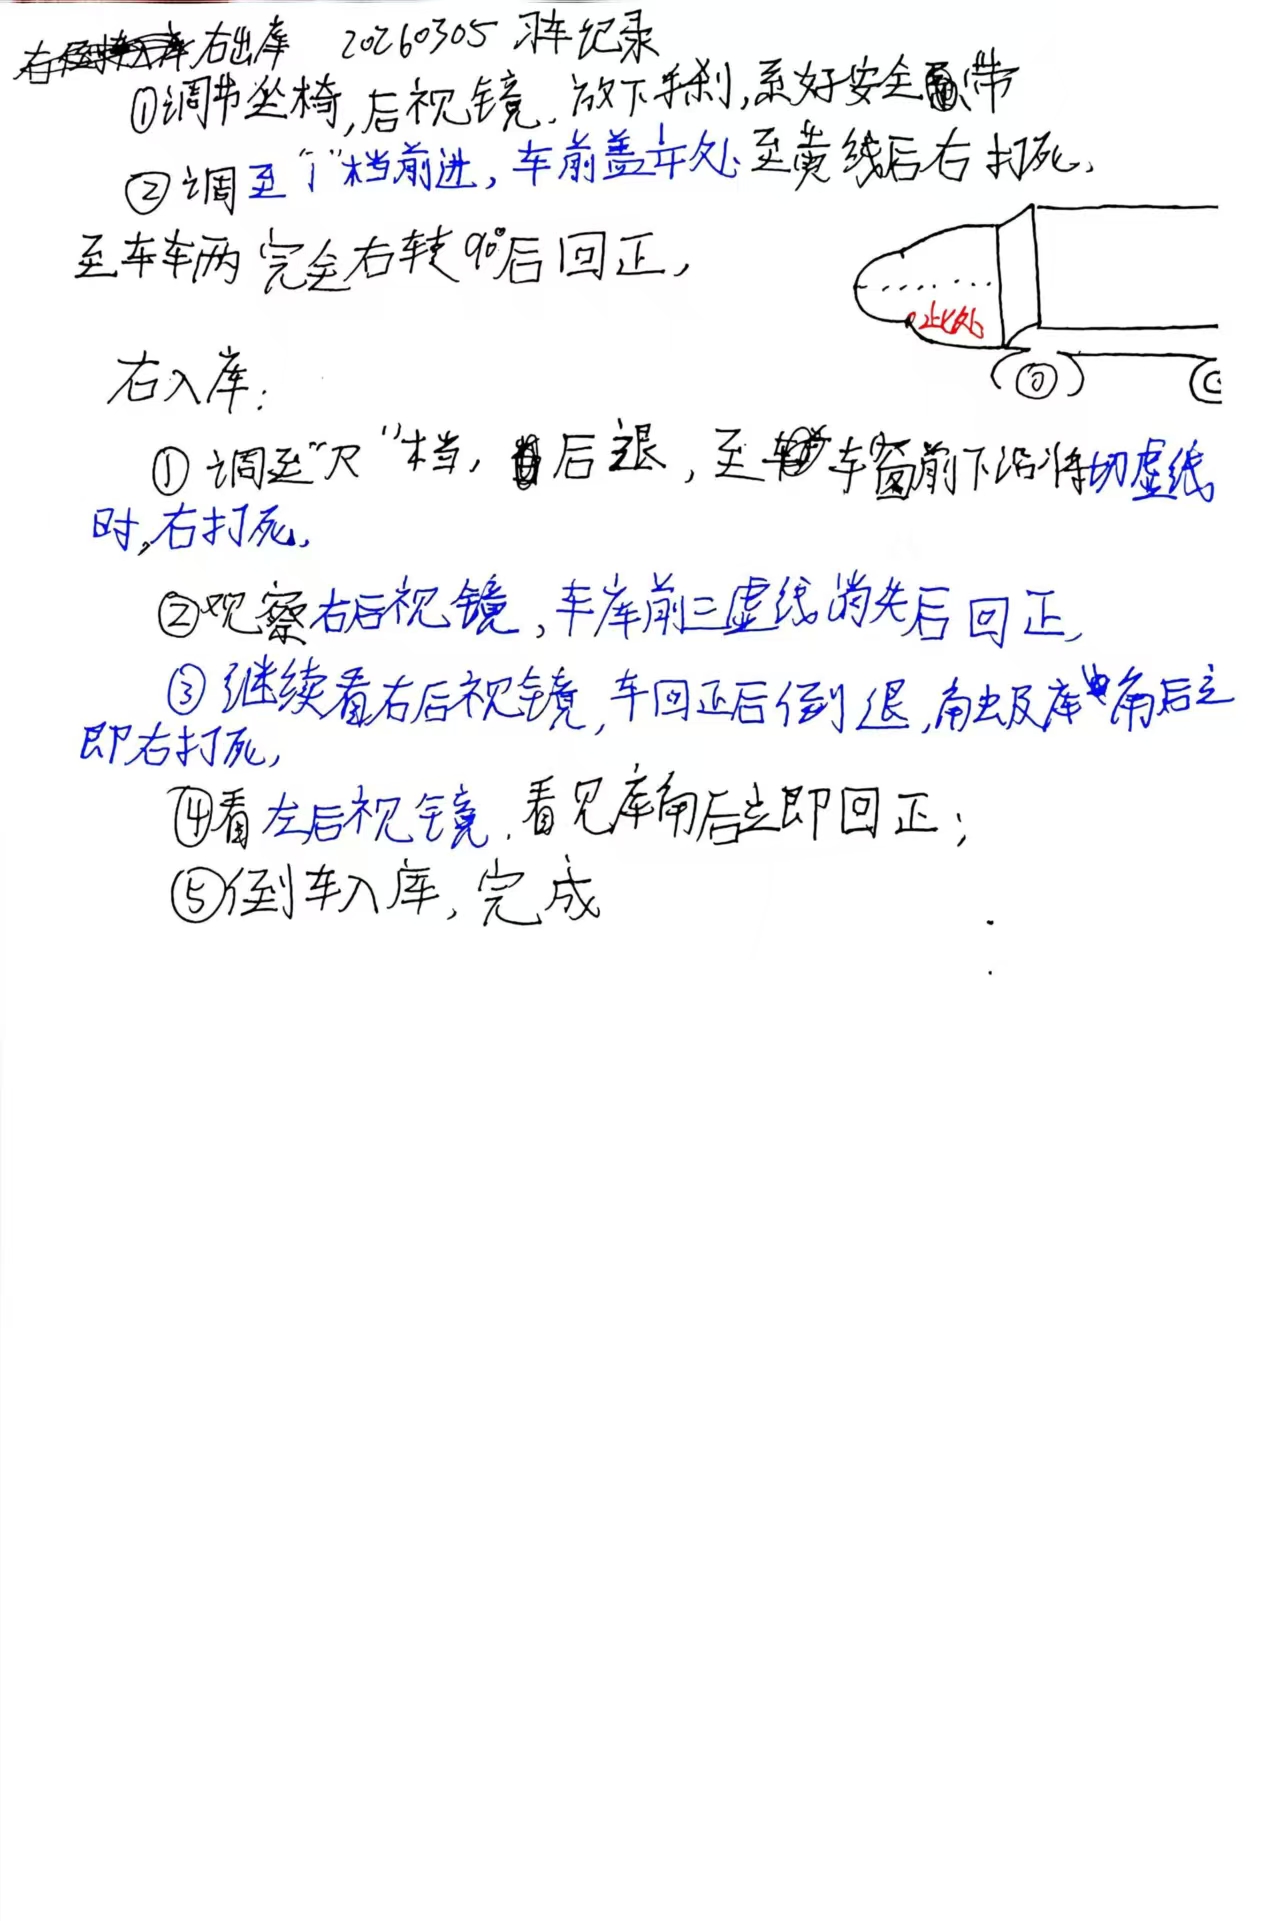 右出库 20260305 习车记录
①调节坐椅,后视镜,放下手刹,系好安全带
②调至“1”档前进,车前盖年处至黄线后右打死,
至车车两完全右转90°后回正,
此处
右入库:
①调至“R”档,后退,至车窗前下沿将切虚线
时,右打死,
②观察右后视镜,车库前三虚线消失后回正,
③继续看右后视镜,车回正后倒退,触及库角后立
即右打死,
④看左后视镜,看见库角后立即回正;
⑤倒车入库,完成